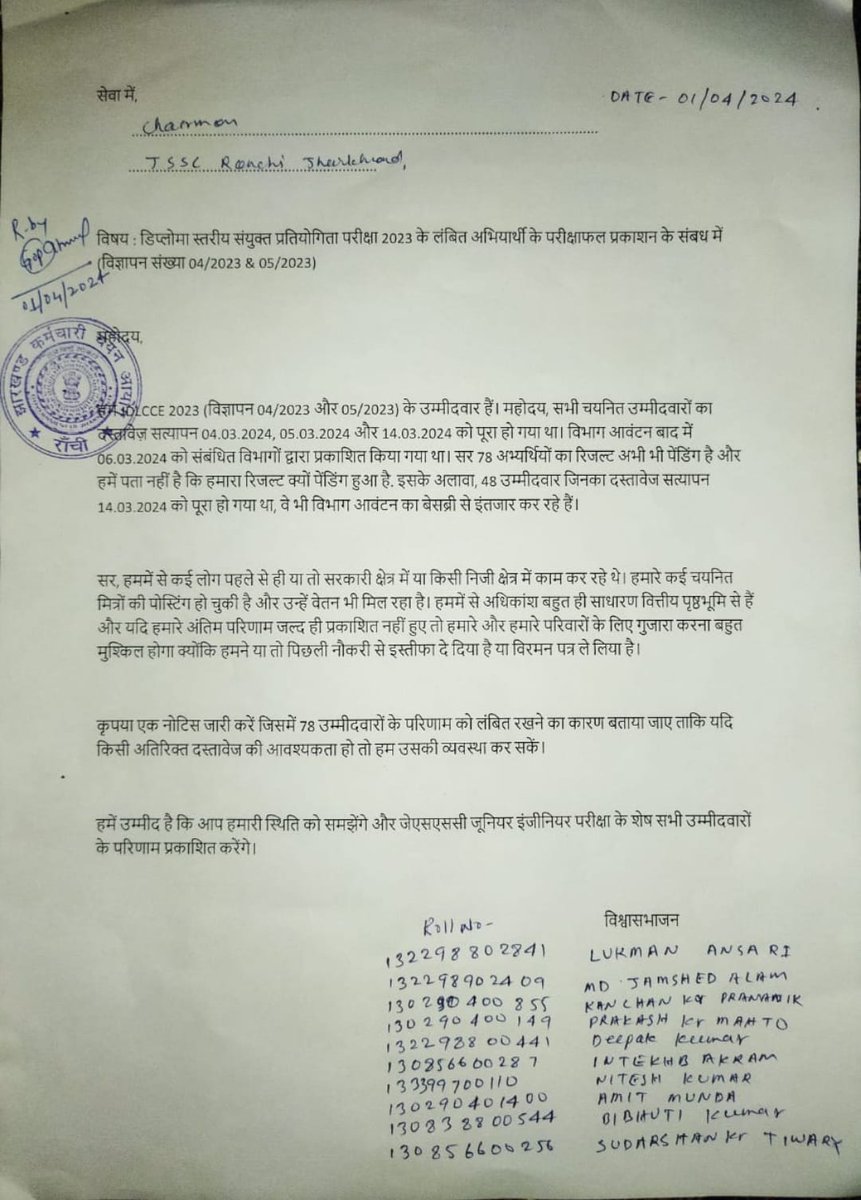 सेवा में,
DATE- 01/04/2024 .
Chairman
JSSC Ranchi Jharkhand,
R-by
01/04/2024
विषय : डिप्लोमा स्तरीय संयुक्त प्रतियोगिता परीक्षा 2023 के लंबित अभियार्थी के परीक्षाफल प्रकाशन के संबध में
(विज्ञापन संख्या 04/2023 & 05/2023)
महोदय,
झारखण्ड कर्मचारी चयन आयोग
राँची
हम JDLCCE 2023 (विज्ञापन 04/2023 और 05/2023) के उम्मीदवार हैं। महोदय, सभी चयनित उम्मीदवारों का
दस्तावेज़ सत्यापन 04.03.2024, 05.03.2024 और 14.03.2024 को पूरा हो गया था। विभाग आवंटन बाद में
06.03.2024 को संबंधित विभागों द्वारा प्रकाशित किया गया था। सर 78 अभ्यर्थियों का रिजल्ट अभी भी पेंडिंग है और
हमें पता नहीं है कि हमारा रिजल्ट क्यों पेंडिंग हुआ है. इसके अलावा, 48 उम्मीदवार जिनका दस्तावेज सत्यापन
14.03.2024 को पूरा हो गया था, वे भी विभाग आवंटन का बेसब्री से इंतजार कर रहे हैं।
सर, हममें से कई लोग पहले से ही या तो सरकारी क्षेत्र में या किसी निजी क्षेत्र में काम कर रहे थे। हमारे कई चयनित
मित्रों की पोस्टिंग हो चुकी है और उन्हें वेतन भी मिल रहा है। हममें से अधिकांश बहुत ही साधारण वित्तीय पृष्ठभूमि से हैं
और यदि हमारे अंतिम परिणाम जल्द ही प्रकाशित नहीं हुए तो हमारे और हमारे परिवारों के लिए गुजारा करना बहुत
मुश्किल होगा क्योंकि हमने या तो पिछली नौकरी से इस्तीफा दे दिया है या विरमन पत्र ले लिया है।
कृपया एक नोटिस जारी करें जिसमें 78 उम्मीदवारों के परिणाम को लंबित रखने का कारण बताया जाए ताकि यदि
किसी अतिरिक्त दस्तावेज की आवश्यकता हो तो हम उसकी व्यवस्था कर सकें।
हमें उम्मीद है कि आप हमारी स्थिति को समझेंगे और जेएसएससी जूनियर इंजीनियर परीक्षा के शेष सभी उम्मीदवारों
के परिणाम प्रकाशित करेंगे।
Roll No- विश्वासभाजन
132298802841 LUKMAN ANSARI
132298902409 MD JAMSHED ALAM
130290400855 KANCHAN Kr PRAMANIK
130290400149 PRAKASH Kr MAHTO
132298800441 Deepak Kumar
130856600287 INTEKHB AKRAM
133399700110 NITESH KUMAR
130290401400 AMIT MUNDA
130838800544 BIBHUTI Kumar
130856600256 SUDARSHAN Kr TIWARY